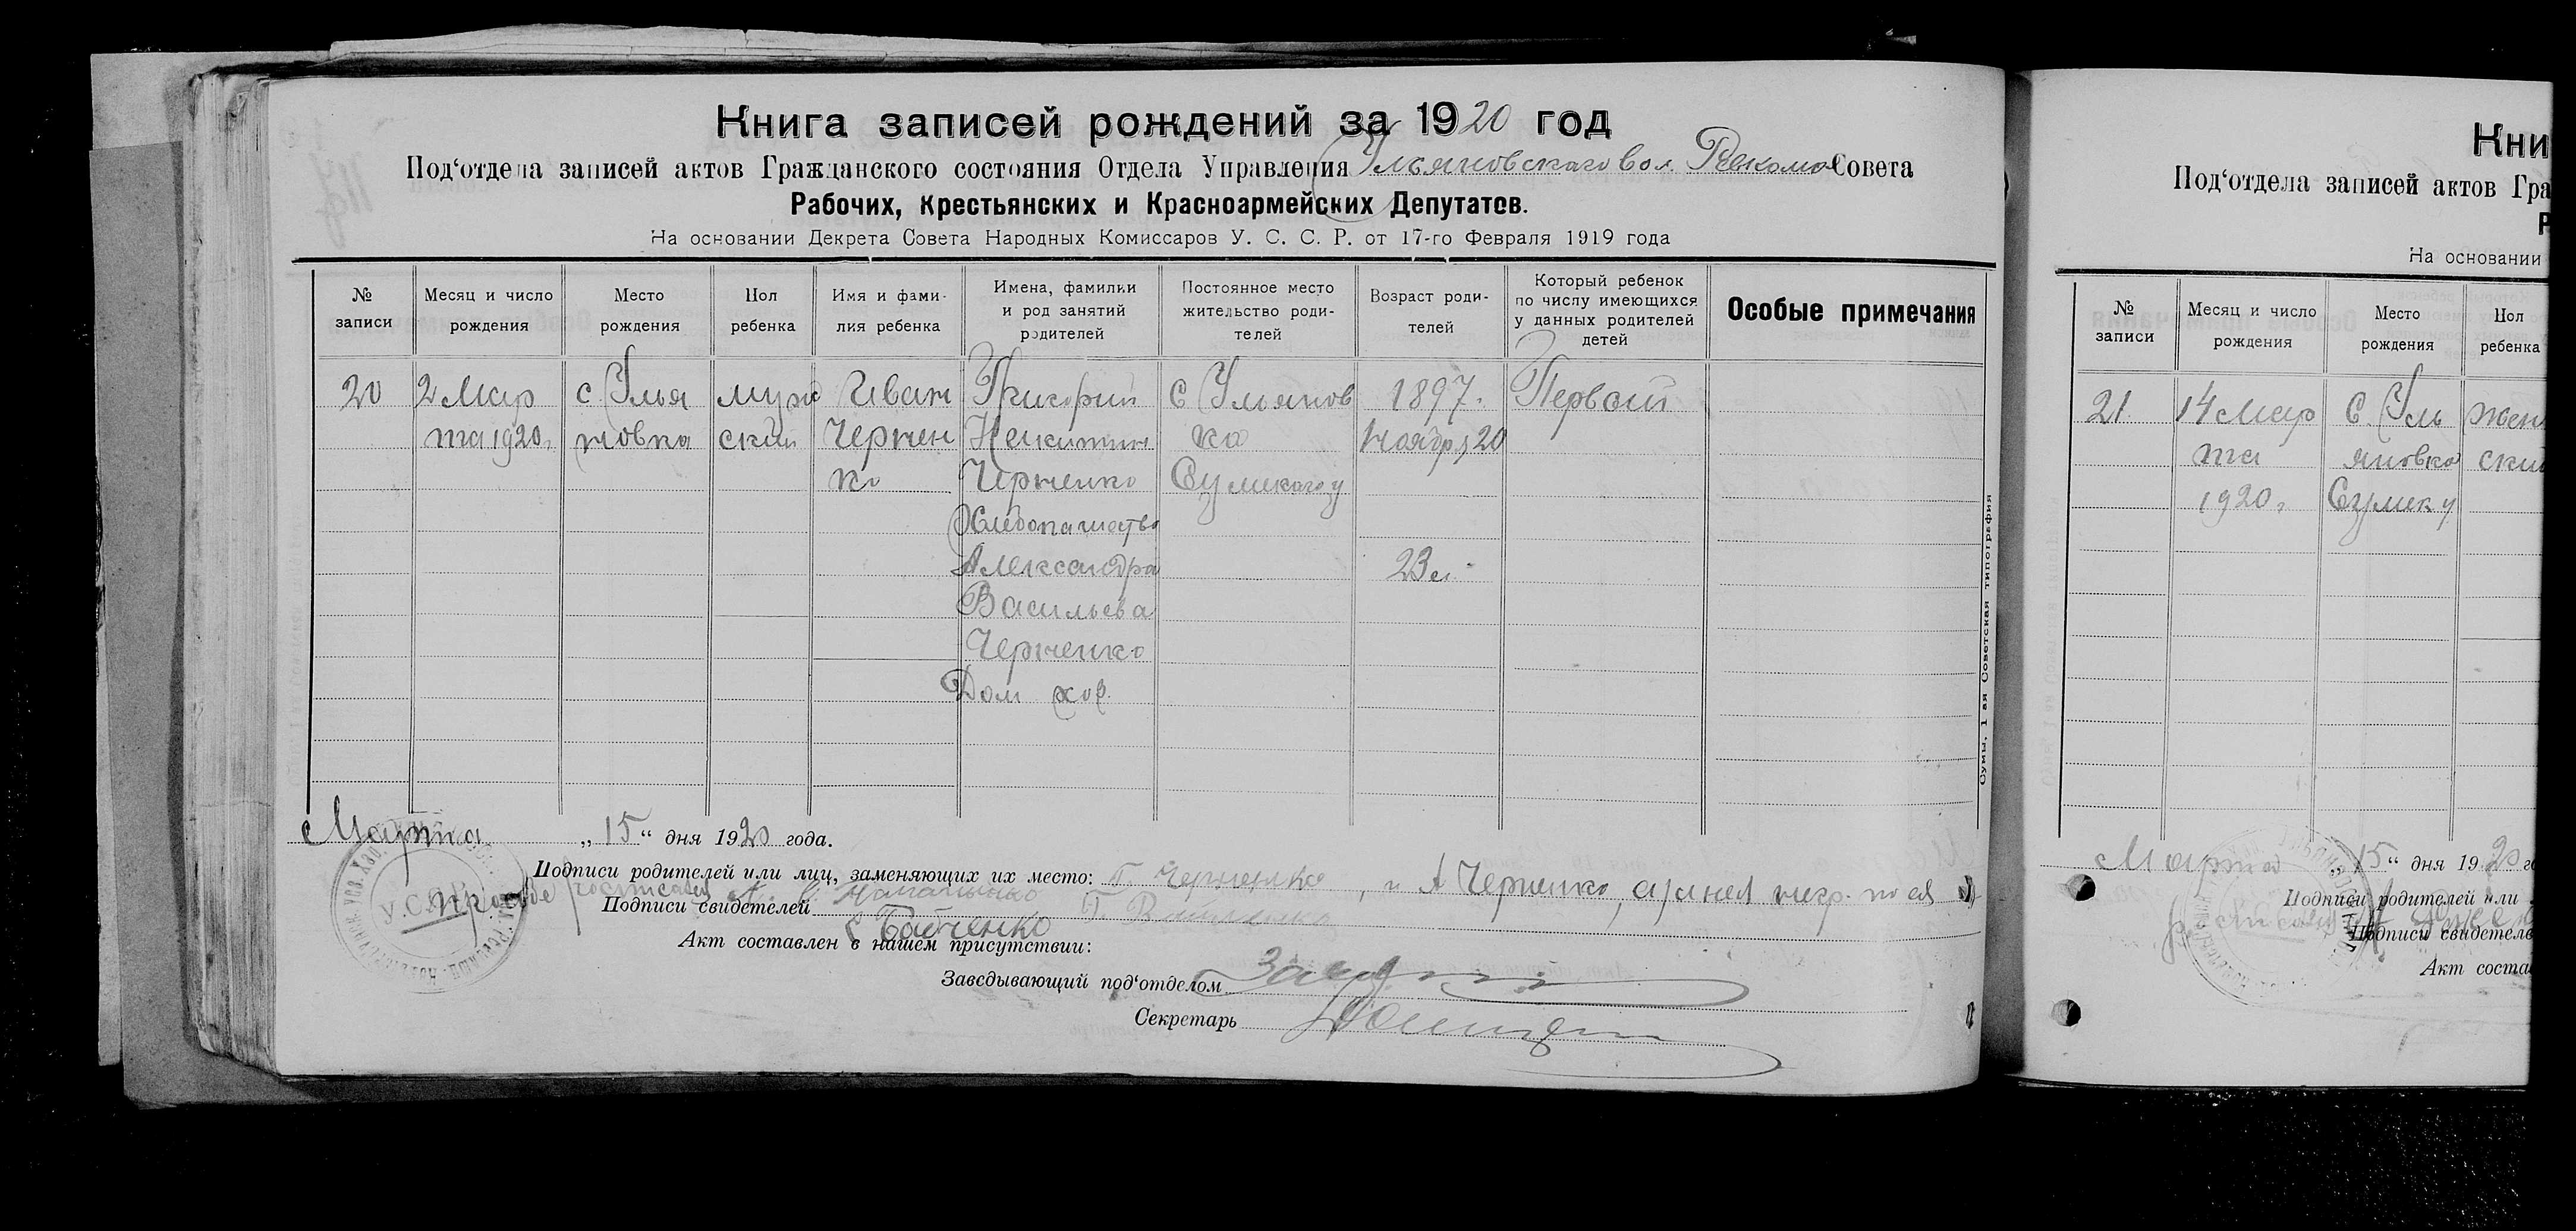 Книга записей рождений за 1920 год
Под‘отдела записей актов Гражданского состояния Отдела Управления Ульяновскаго вол. Ревкома Совета
Рабочих, Крестьянских и Красноармейских Депутатов.
На основании Декрета Совета Народных Комиссаров У. С. С. Р. от 17-го Февраля 1919 года
№ записи
Месяц и число рождения
Место рождения
Пол ребенка
Имя и фами-
лия ребенка
Имена, фамилии
и род занятий
родителей
Постоянное место
жительство роди-
телей
Возраст роди-
телей
Который ребенок
по числу имеющихся
у данных родителей
детей
Особые примечания
20 2 Мар с. Улья муж Иван Григорий С Ульянов 1897. Первый
та 1920. новка ский Чернен Никитин ка Ноября 20
ко Черненко Сумскаго у
Хлебопашество
Александра 23 л.
Васильева
Черненко
Дом хоз.
Сумы, 1-ая Советская типография
Марта „15“ дня 1920 года.
Подписи родителей или лиц, заменяющих их место: Г. Черненко, и А Черненко, а за нея негр. по ея
просьбе росписался
Подписи свидетелей
Бабченко
Акт составлен в нашем присутствии:
Заведывающий под‘отделом
Секретарь
У.С.С.Р.
Кни
Под‘отдела записей актов Гра
Р
На основании
№ записи
Месяц и число рождения
Место рождения
Пол ребенка
21. 14 Мар С. Уль жен
та яновка ски
1920. Сумск у
Марта „15“ дня 1920 го
Подписи родителей или
Подписи свидетеле
Акт соста